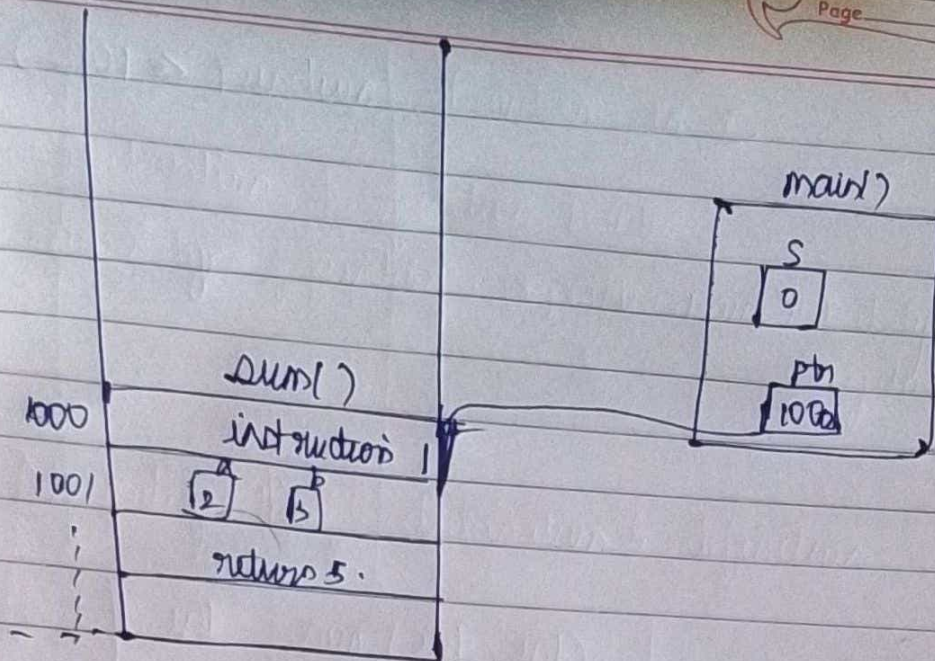 Page
main()
S
0
ptr
1000
sum()
1000
instruction 1
1001
a
b
2
3
return 5.